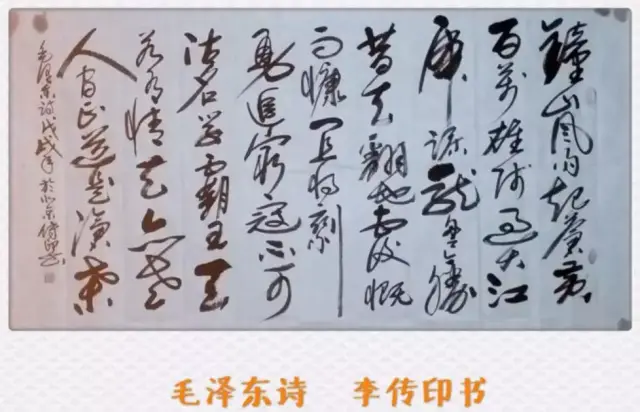 鐘山風雨起蒼黄
百萬雄师過大江
虎踞龍盤今勝
昔天翻地覆慨
而慷宜将剩
勇追窮寇不可
沽名学霸王天
若有情天亦老
人间正道是滄桑
毛澤东诗戊戌年於北京傳印书
毛泽东诗 李传印书